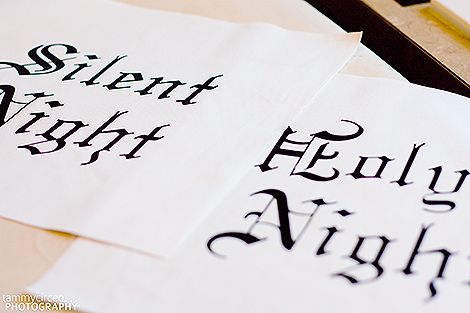 Silent
Night
Holy
Night
tammycirceo...
PHOTOGRAPHY